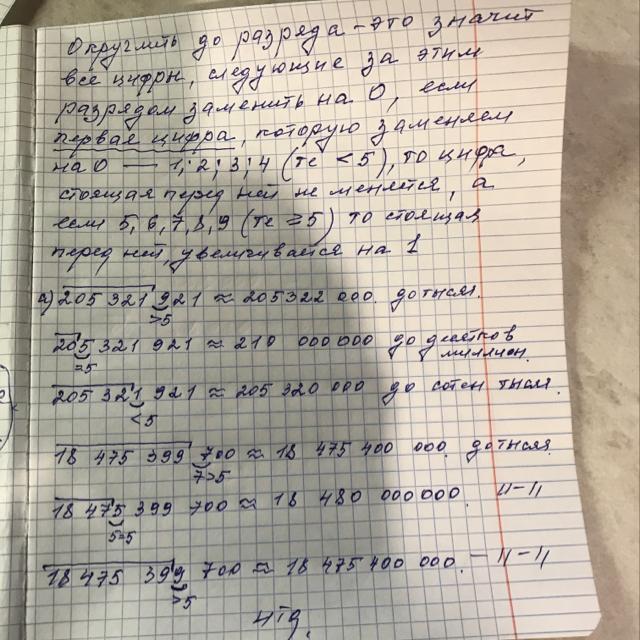 Округлить до разряда - это значит
все цифры, следующие за этим
разрядом заменить на 0, если
первая цифра, которую заменяем
на 0 — 1; 2; 3; 4 (те < 5), то цифра,
стоящая перед ней не меняется, а
если 5, 6, 7, 8, 9 (те ≥ 5) то стоящая
перед ней, увеличивается на 1
а) 205 321 921 ≈ 205 322 000. до тысяч.
>5
205 321 921 ≈ 210 000 000 до десятков
=5 миллион.
205 321 921 ≈ 205 320 000 до сотен тысяч.
<5
18 475 399 700 ≈ 18 475 400 000. до тысяч
7>5
18 475 399 700 ≈ 18 480 000 000. 11-11
5=5
18 475 399 700 ≈ 18 475 400 000. -11-11
>5
итд.